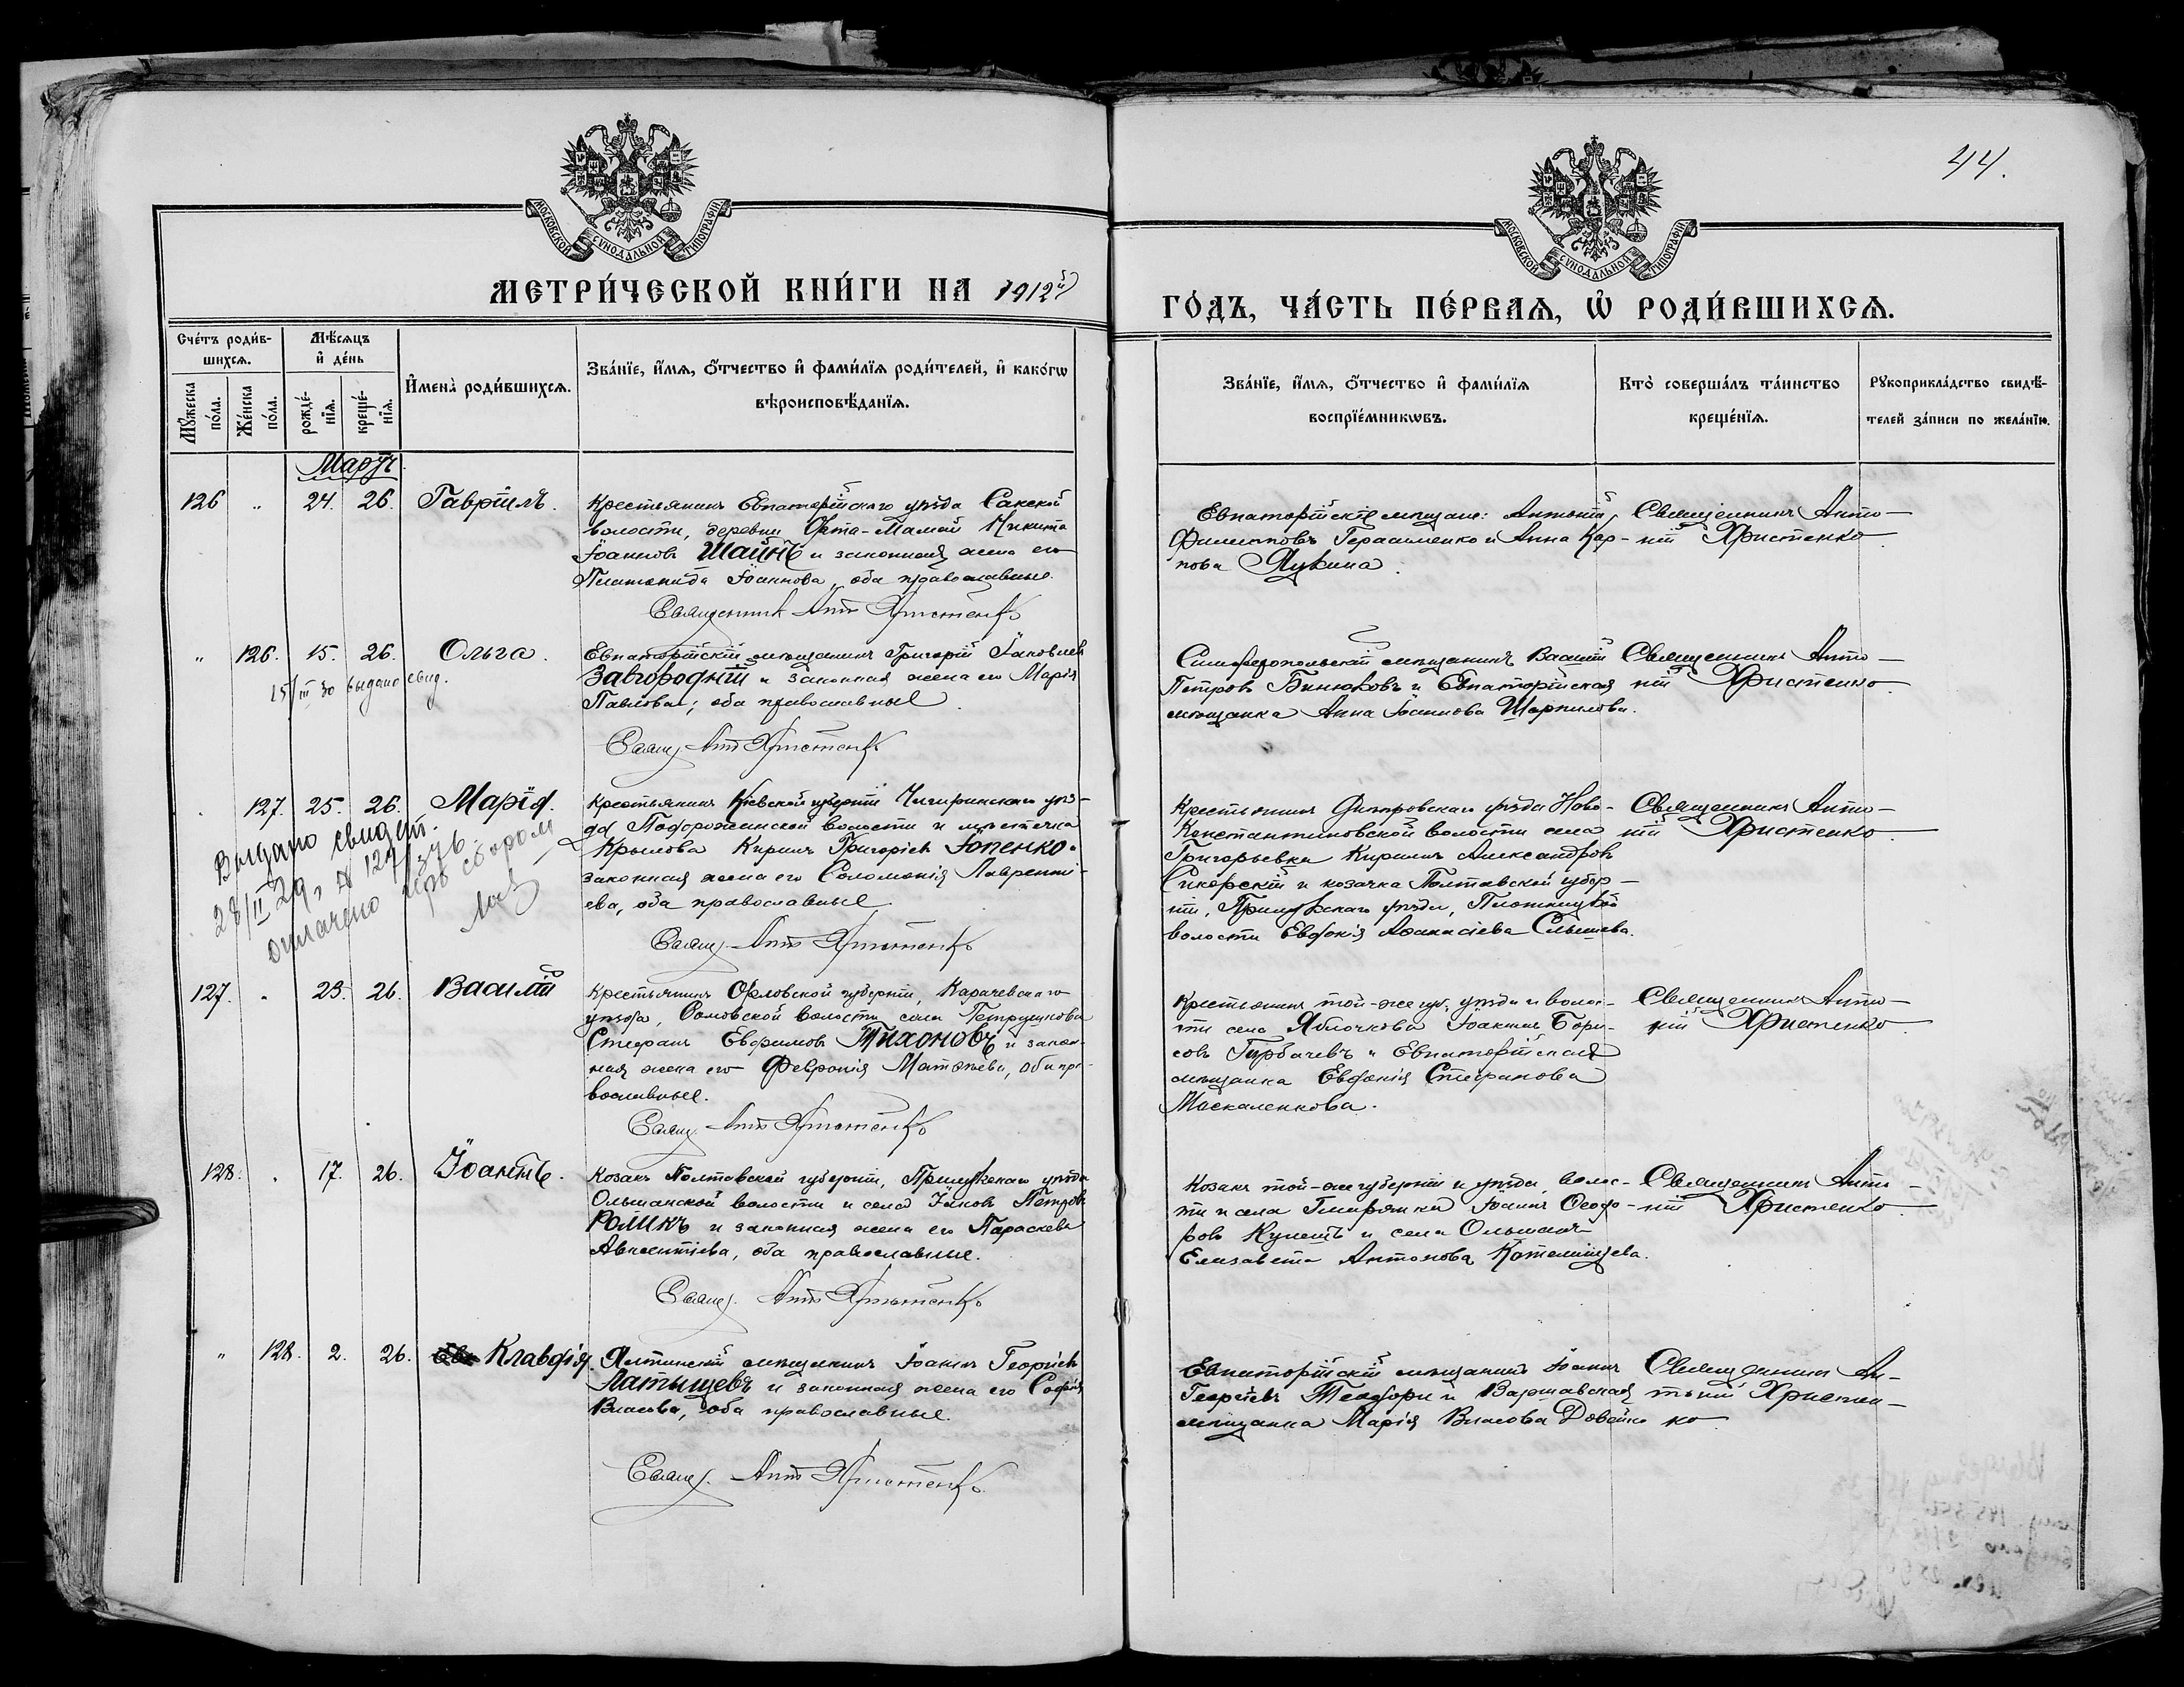 44.
МОСКОВСКОЙ СѴНОДАЛЬНОЙ ТИПОГРАФІИ
МОСКОВСКОЙ СѴНОДАЛЬНОЙ ТИПОГРАФІИ
МЕТРИ́ЧЕСКОЙ КНИ́ГИ НА 1912й
ГО́ДЪ, ЧА́СТЬ ПЕ́РВАѦ, Ѡ҆ РОДИ́ВШИХСѦ.
Сче́тъ роди́в-
шихсѧ.
Мѣ́сѧцъ
и҆ де́нь
Мꙋ́жеска по́ла.
Же́нска по́ла.
рожде́-
нїѧ.
креще́-
нїѧ.
И҆мена̀ роди́вшихсѧ.
Зва́нїе, и҆́мѧ, ѻ҆́тчество и҆ фами́лїѧ роди́телей, и҆ како́гѡ
вѣроисповѣ́данїѧ.
Зва́нїе, и҆́мѧ, ѻ҆́тчество и҆ фами́лїѧ
воспрїе́мникѡвъ.
Кто̀ соверша́лъ та́инство
креще́нїѧ.
Рꙋкоприкла́дство свидѣ́-
телей за́писи по жела́нїю.
Мартъ
126 " 24. 26. Гавріилъ.
Крестьянинъ Евпаторійскаго уѣзда Сакской
волости, деревни Орта-Мамай Никита
Іоанновъ Шаинъ и законная жена его
Платонида Іоаннова, оба православные.
Священникъ Ант. Христенко
Евпаторійскіе мѣщане: Антоній
Филипповъ Герасименко и Анна Кар-
пова Лукина.
Священникъ Анто-
ній Христенко
" 126. 15. 26. Ольга.
15/III 30 выдано свид.
Евпаторійскій мѣщанинъ Григорій Іаковлевъ
Завгородній и законная жена его Марія
Павлова; оба православные.
Свящ. Ант. Христенко
Симферопольскій мѣщанинъ Василій
Петровъ Бинюковъ и Евпаторійская
мѣщанка Анна Іоаннова Шарпилова.
Священникъ Анто-
ній Христенко.
127. 25. 26. Марія.
Выдано свидет.
28/II 29, № 127/346
оплачено герб сбором
Крестьянинъ Кіевской губерніи Чигиринскаго уѣз-
да Подорожинской волости и мѣстечка
Крылова Кириллъ Григоріевъ Юпенко и
законная жена его Соломонія Лавренті-
ева, оба православные.
Свящ. Ант. Христенко
Крестьянинъ Днѣпровскаго уѣзда Ново-
Константиновской волости села
Григорьевка Кириллъ Александровъ
Сикорскій и козачка Полтавской губер-
ніи, Прилукскаго уѣзда,
волости Евфонія Аѳанасіева
Священникъ Анто-
ній Христенко.
127. " 23. 26. Василій
Крестьянинъ Орловской губерніи, Карачевскаго
уѣзда, волости села Петрушкова
Стефанъ Евфимовъ Тихоновъ и закон-
ная жена его Февронія Матѳѣева, оба пра-
вославные.
Свящ. Ант. Христенко
Крестьянинъ той-же губ. уѣзда и волос-
ти села Яблочкова Іоакимъ Бори-
совъ Гурбачевъ и Евпаторійская
мѣщанка Евфонія Стефанова
Маскаленкова.
Священникъ Анто-
ній Христенко.
128. " 17. 26. Іоаннъ.
Козакъ Полтавской губерніи, Прилукскаго уѣзда
Ольшанской волости и села Іаковъ Петровъ
Ромикъ и законная жена его Параскева
Авксентіева, оба православные.
Свящ. Ант. Христенко
Козакъ той-же губерніи и уѣзда, волос-
ти и села Іоаннъ Ѳеодо-
ровъ и села Ольшанъ
Елизавета Антонова
Священникъ Анто-
ній Христенко.
" 128. 2. 26. Клавдія.
Ялтинскій мѣщанинъ Іоаннъ Георгіевъ
Латышевъ и законная жена его Софія
Власова, оба православные.
Свящ. Ант. Христенко
Евпаторійскій мѣщанинъ Іоаннъ
Георгіевъ Теодори и Варшавская
мѣщанка Марія Власова Довойно
Священникъ Ан-
тоній Христен-
ко.